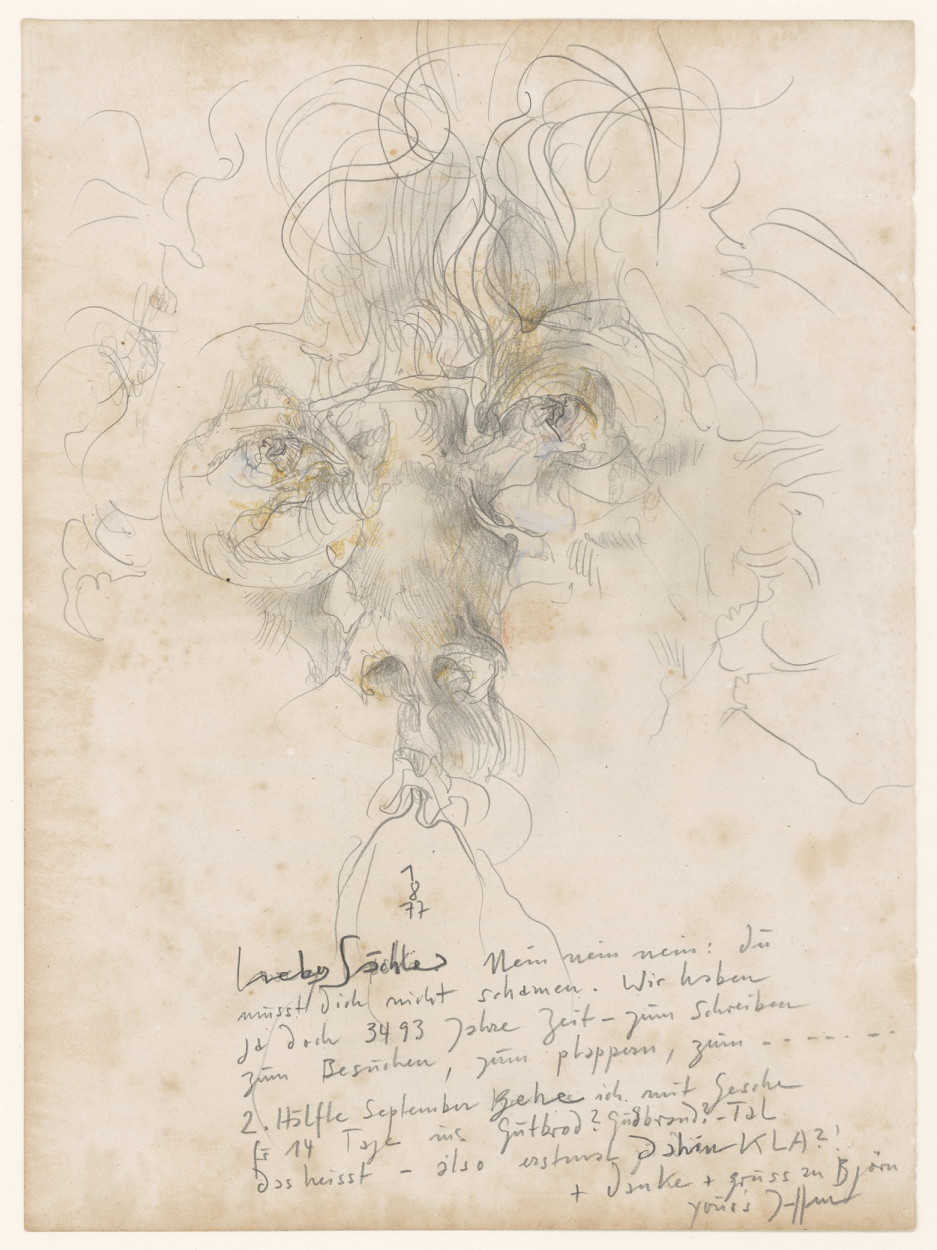 1
8
77
Lieber Nein nein nein: du
musst dich nicht schämen. Wir haben
ja doch 3493 Jahre Zeit – zum Schreiben
zum Besuchen, zum plappern, zum - - - - - - -
2. Hälfte September gehe ich mit Gesche
für 14 Tage ins Gutbrod? Gudbrand?-Tal
Das heisst – also erstmal dahin KLA?!
+ danke + gruss an Björn
yours